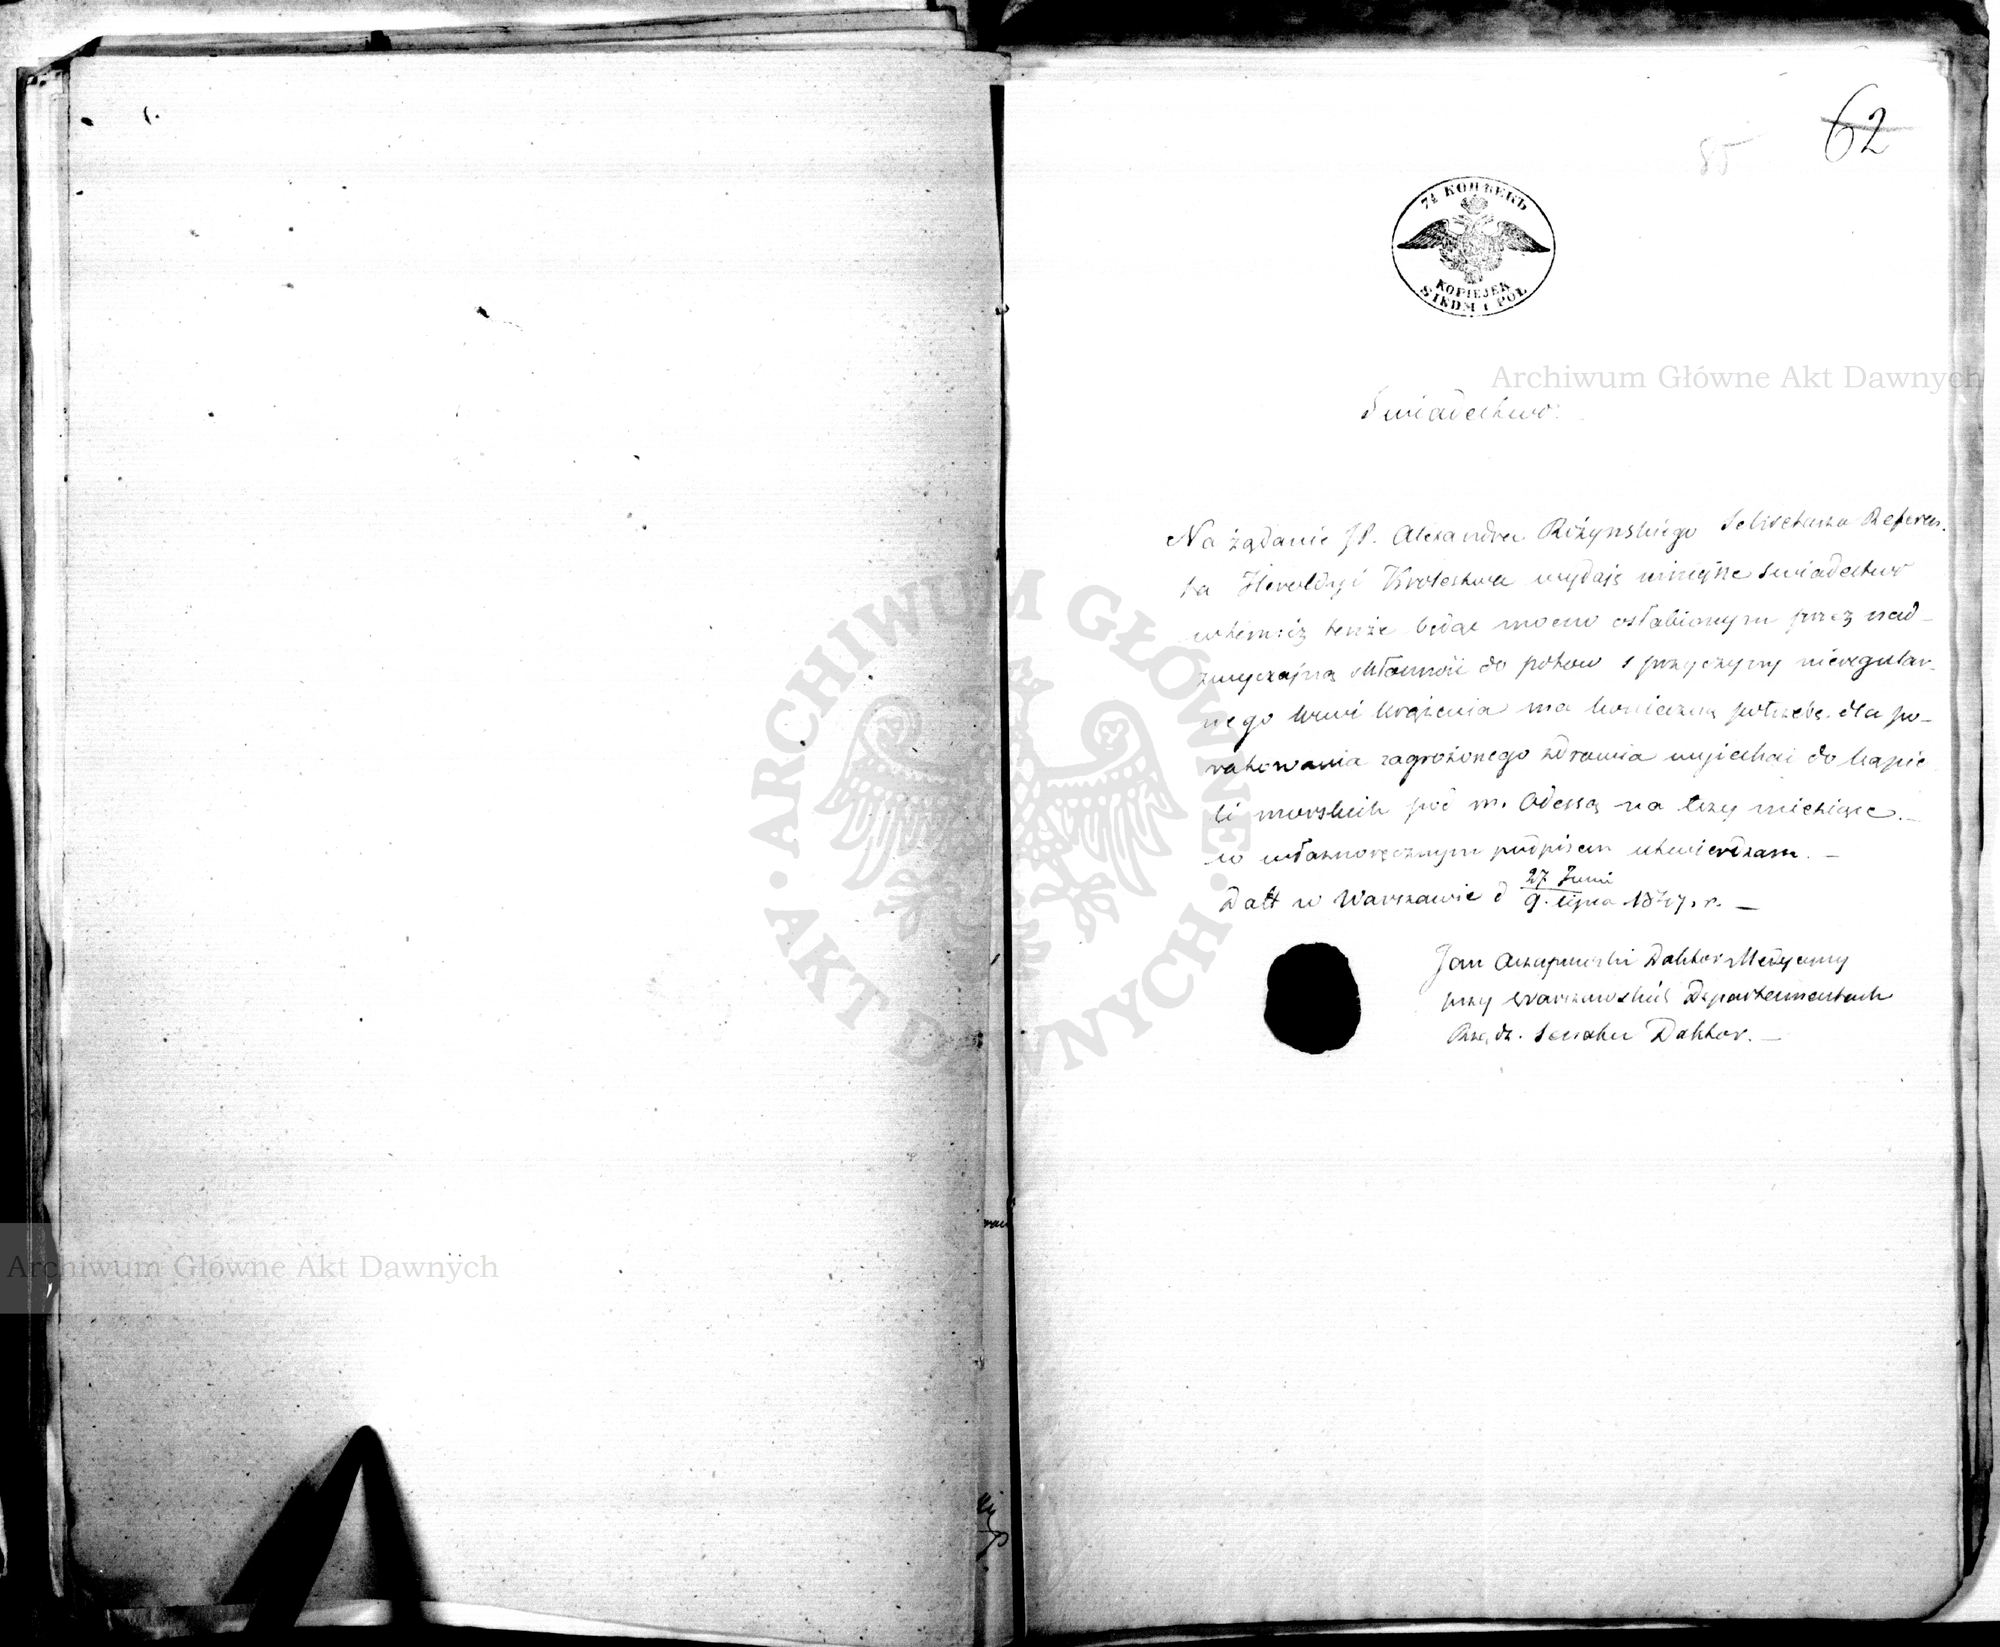 62
85
7½ КОПѢЕКЪ
KOPIEJEK
SIEDM i PÓŁ
Archiwum Główne Akt Dawnych
Swiadectwo:
Na żądanie JP. Alexandra Różynskiego Sekretarza Referen-
ta Heroldyi Krolestwa wydaję ninieysze swiadectwo
w tem: iż tenże będąc mocno osłabionym przez nad-
zwyczajną skłonność do potow z przyczyny nieregular-
nego krwi krążenia ma konieczną potrzebę dla po-
ratowania zagrożonego zdrowia wyjechać do kąpie
li morskich pod m. Odessą na trzy miesiące. —
co własnoręcznym podpisem utwierdzam. —
Datt w Warszawie d 27 Juni
9. lipca 1847. r. —
Jan Doktor Medycyny
przy Warszawskich Departamentach
Rządz. Senatu Doktor. —
ARCHIWUM GŁÓWNE AKT DAWNYCH
Archiwum Główne Akt Dawnych